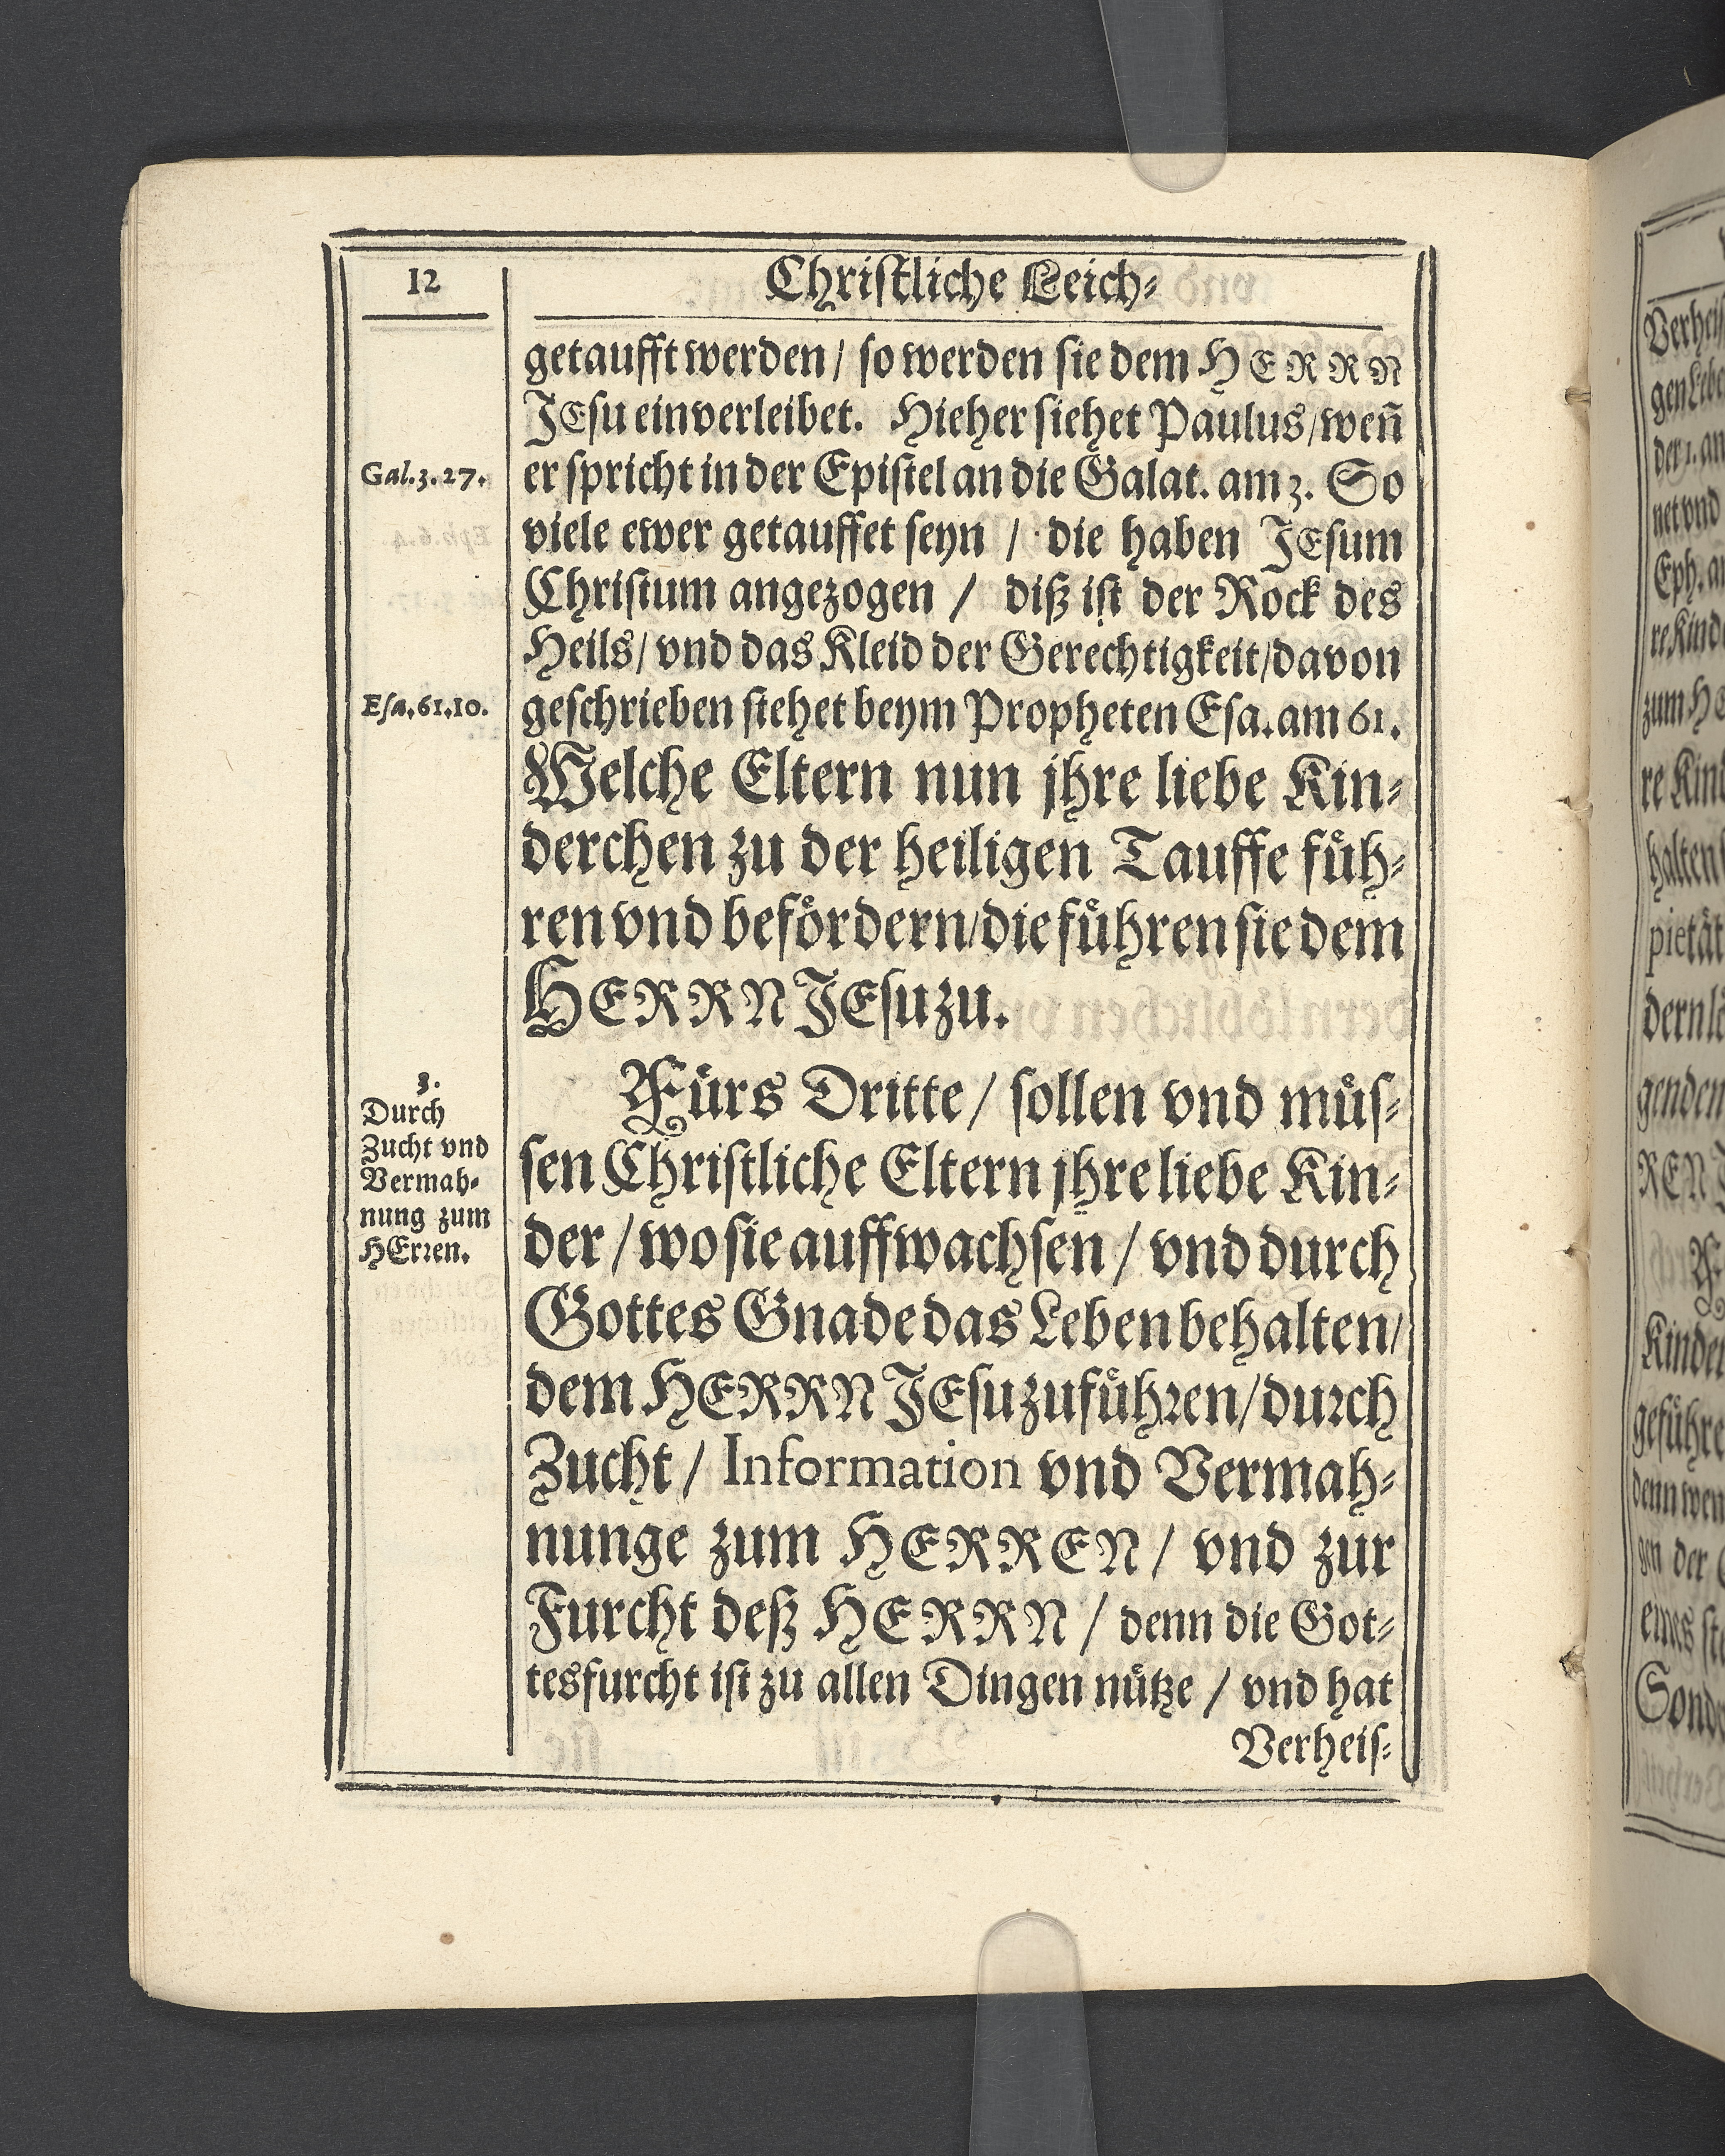 12
Christliche Leich⸗
getaufft werden / so werden sie dem HERRN
JEsu einverleibet. Hieher siehet Paulus / weñ
Gal. 3. 27.
er spricht in der Epistel an die Galat. am 3. So
viele ewer getauffet seyn / die haben JEsum
Christum angezogen / diß ist der Rock des
Heils / vnd das Kleid der Gerechtigkeit / davon
Esa. 61. 10.
geschrieben stehet beym Propheten Esa. am 61.
Welche Eltern nun jhre liebe Kin⸗
derchen zu der heiligen Tauffe fuͤh⸗
ren vnd befoͤrdern / die fuͤhren sie dem
HERRN JEsu zu.
3.
Durch
Zucht vnd
Vermah⸗
nung zum
HErren.
Fuͤrs Dritte / sollen vnd muͤs⸗
sen Christliche Eltern jhre liebe Kin⸗
der / wo sie auffwachsen / vnd durch
Gottes Gnade das Leben behalten /
dem HERRN JEsu zufuͤhren / durch
Zucht / Information vnd Vermah⸗
nunge zum HERREN / vnd zur
Furcht deß HERRN / denn die Got⸗
tesfurcht ist zu allen Dingen nuͤtze / vnd hat
Verheis⸗